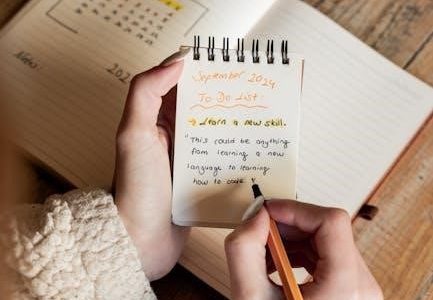 September 2024
To Do List:
→ Learn a new skill.
"This could be anything
from learning a new
language to learning
how to code
Notes:
202